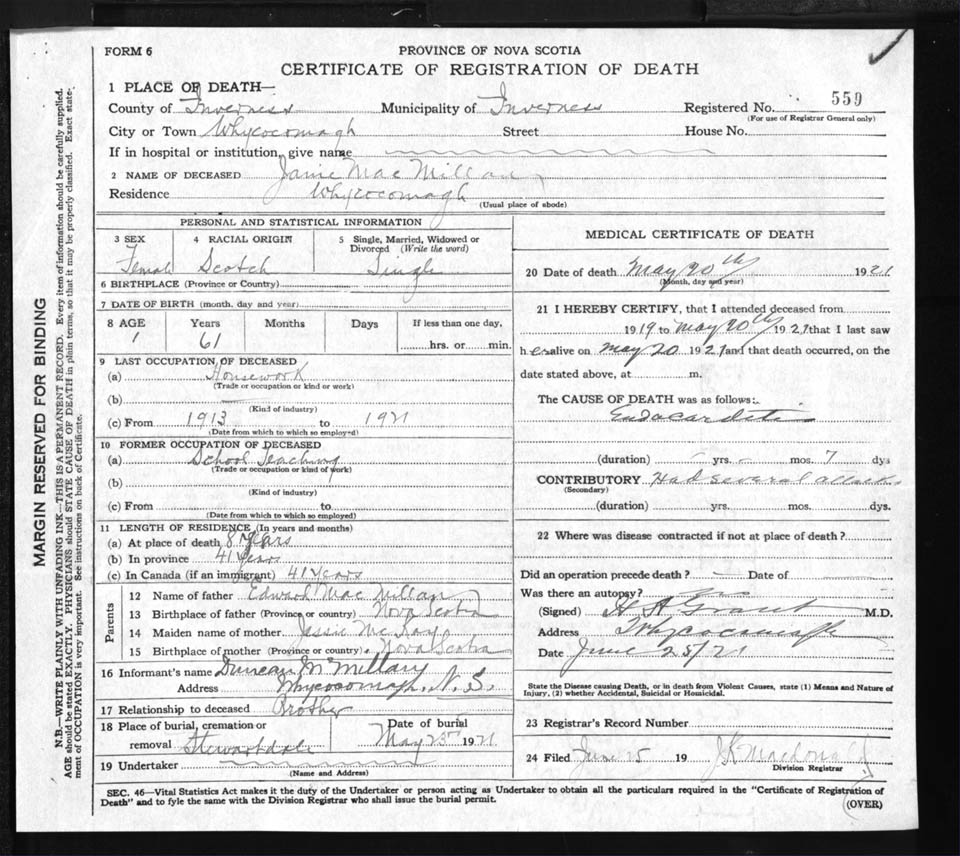 FORM 6
PROVINCE OF NOVA SCOTIA
CERTIFICATE OF REGISTRATION OF DEATH
MARGIN RESERVED FOR BINDING
N.B.—WRITE PLAINLY WITH UNFADING INK—THIS IS A PERMANENT RECORD. Every item of information should be carefully supplied.
AGE should be stated EXACTLY. PHYSICIANS should STATE CAUSE OF DEATH in plain terms, so that it may be properly classified. Exact statement of OCCUPATION is very important. See instructions on back of Certificate.
1 PLACE OF DEATH—
County of Inverness Municipality of Inverness Registered No. 559
(For use of Registrar General only)
City or Town Whycocomagh Street House No.
If in hospital or institution, give name
2 NAME OF DECEASED Janie Mac Millan
Residence Whycocomagh
(Usual place of abode)
PERSONAL AND STATISTICAL INFORMATION
3 SEX Female
4 RACIAL ORIGIN Scotch
5 Single, Married, Widowed or Divorced (Write the word) Single
6 BIRTHPLACE (Province or Country)
7 DATE OF BIRTH (month, day and year)
8 AGE Years 61 Months Days If less than one day, hrs. or min.
9 LAST OCCUPATION OF DECEASED
(a) Housework
(Trade or occupation or kind or work)
(b)
(Kind of industry)
(c) From 1913 to 1921
(Date from which to which so employed)
10 FORMER OCCUPATION OF DECEASED
(a) School Teaching
(Trade or occupation or kind of work)
(b)
(Kind of industry)
(c) From to
(Date from which to which so employed)
11 LENGTH OF RESIDENCE (In years and months)
(a) At place of death 8 Years
(b) In province 41 Years
(c) In Canada (if an immigrant) 41 Years
Parents
12 Name of father Edward Mac Millan
13 Birthplace of father (Province or country) Nova Scotia
14 Maiden name of mother Jessie McKay
15 Birthplace of mother (Province or country) Nova Scotia
16 Informant's name Duncan McMillan
Address Whycocomagh, N.S.
17 Relationship to deceased Brother
18 Place of burial, cremation or removal Stewartdale
Date of burial May 23rd 1921
19 Undertaker
(Name and Address)
MEDICAL CERTIFICATE OF DEATH
20 Date of death May 20th 1921
(Month, day and year)
21 I HEREBY CERTIFY, that I attended deceased from
1919 to May 20th 1921 that I last saw
her alive on May 20 1921 and that death occurred, on the
date stated above, at m.
The CAUSE OF DEATH was as follows:
Endocarditis
(duration) yrs. mos. 7 dys
CONTRIBUTORY Had several attacks
(Secondary)
(duration) yrs. mos. dys.
22 Where was disease contracted if not at place of death?
Did an operation precede death? Date of
Was there an autopsy? no
(Signed) H A Grant M.D.
Address Whycocomagh
Date June 25/21
State the Disease causing Death, or in death from Violent Causes, state (1) Means and Nature of
Injury, (2) whether Accidental, Suicidal or Homicidal.
23 Registrar's Record Number
24 Filed June 25 19 J K Macdonald
Division Registrar
SEC. 46—Vital Statistics Act makes it the duty of the Undertaker or person acting as Undertaker to obtain all the particulars required in the "Certificate of Registration of
Death" and to fyle the same with the Division Registrar who shall issue the burial permit.
(OVER)